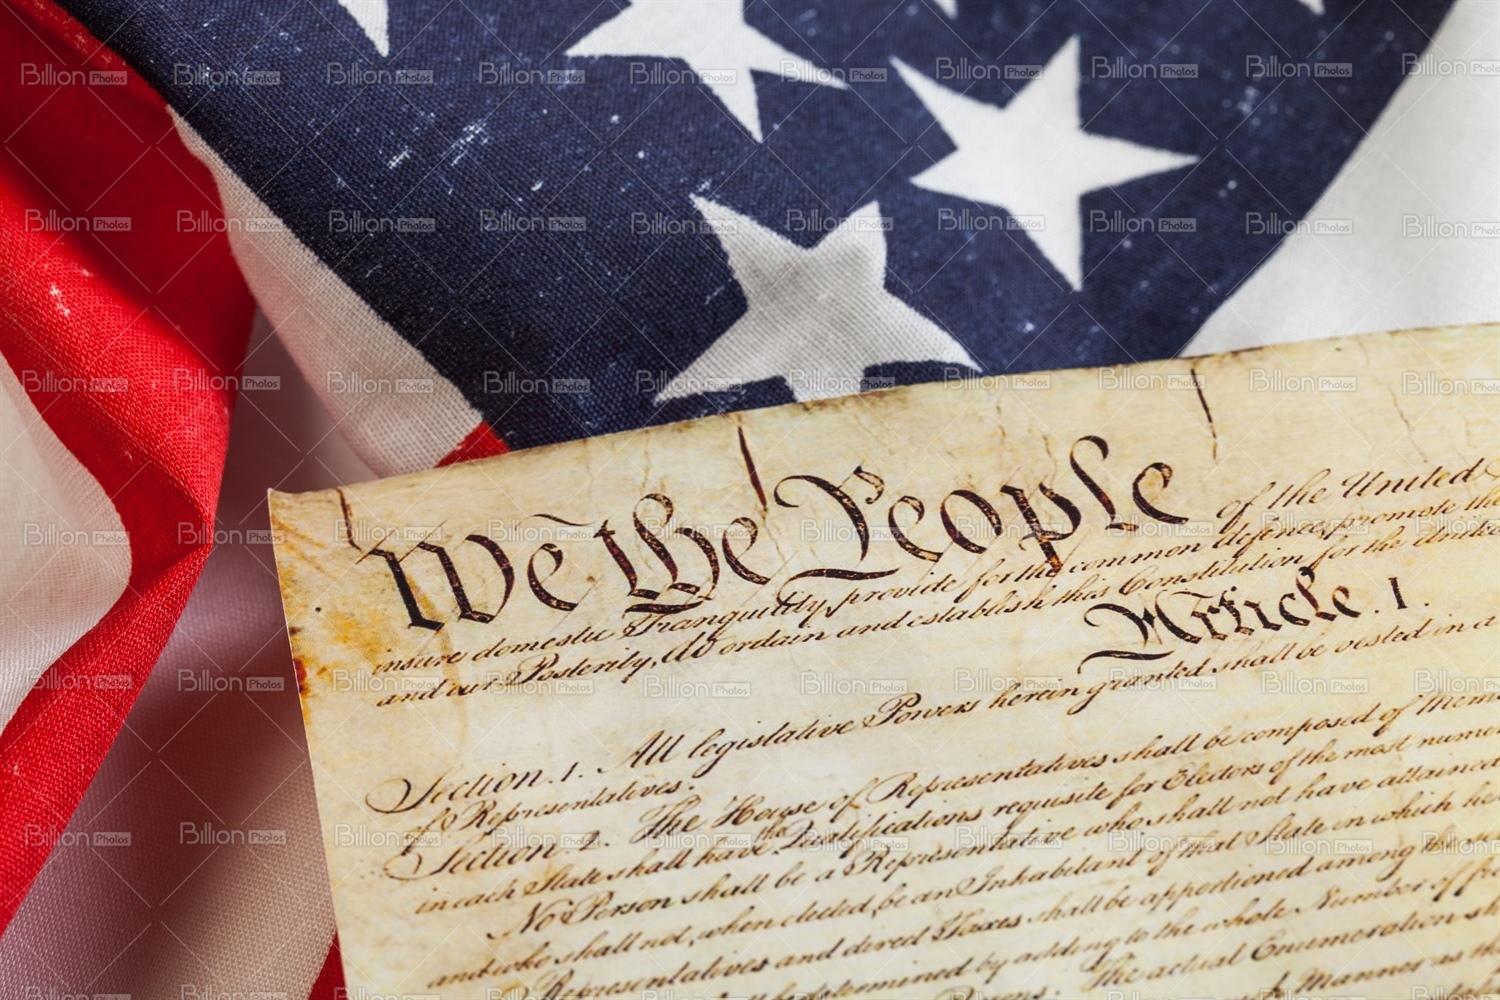 We the People of the United
insure domestic Tranquility, provide for the common defence, promote the
and our Posterity, do ordain and establish this Constitution for the United
Article. I.
Section. 1. All legislative Powers herein granted shall be vested in a
of Representatives.
Section. 2. The House of Representatives shall be composed of Mem
in each State shall have the Qualifications requisite for Electors of the most numer
No Person shall be a Representative who shall not have attained
and who shall not, when elected, be an Inhabitant of that State in which he
Representatives and direct Taxes shall be apportioned among the se
determined by adding to the whole Number of fre
The actual Enumeration sh
Manner as th
Billion Photos